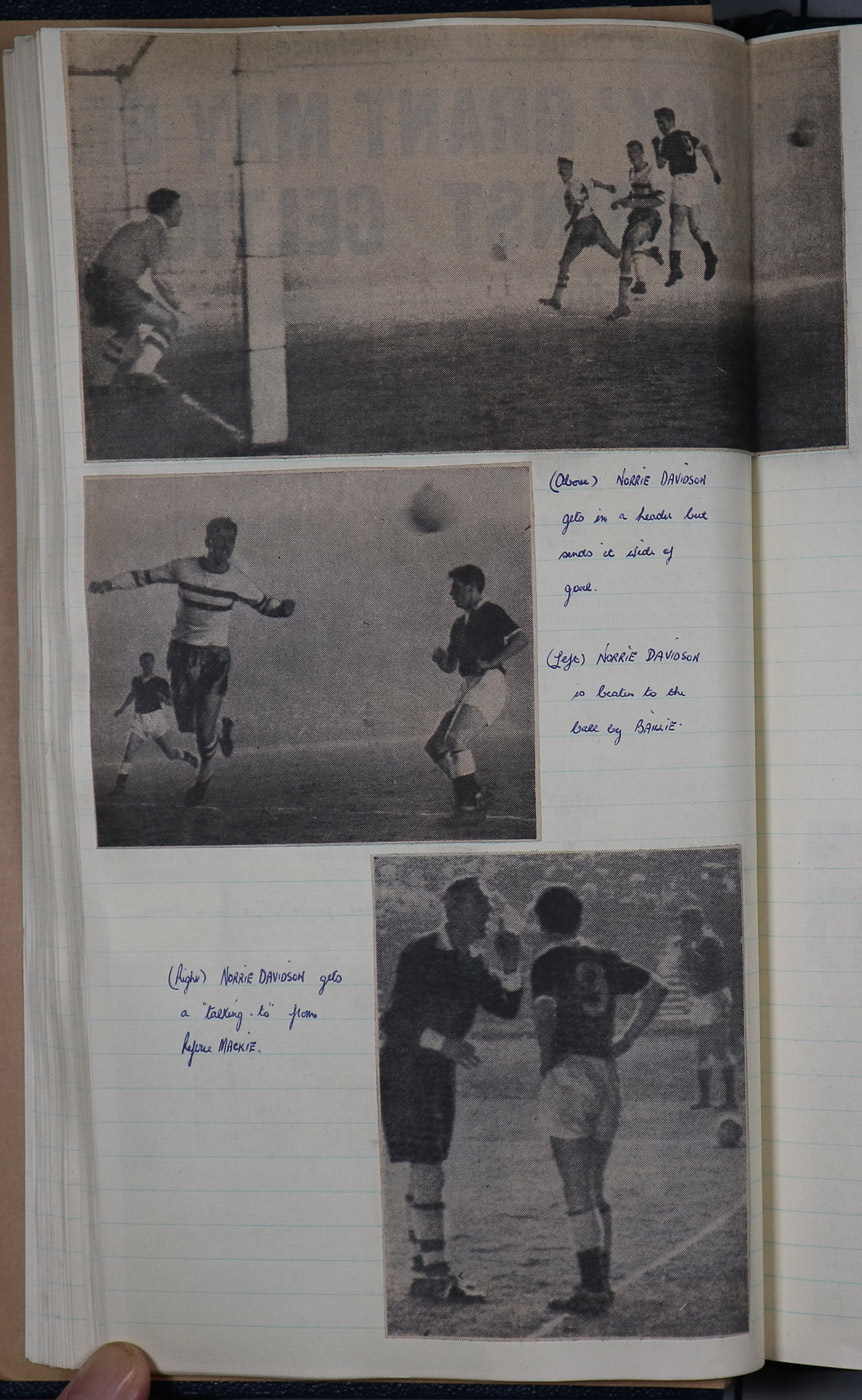 (Above) NORRIE DAVIDSON
gets in a header but
sends it wide of
goal.
(Left) NORRIE DAVIDSON
is beaten to the
ball by BAILLIE.
(Right) NORRIE DAVIDSON gets
a "talking-to" from
Referee MACKIE.
9